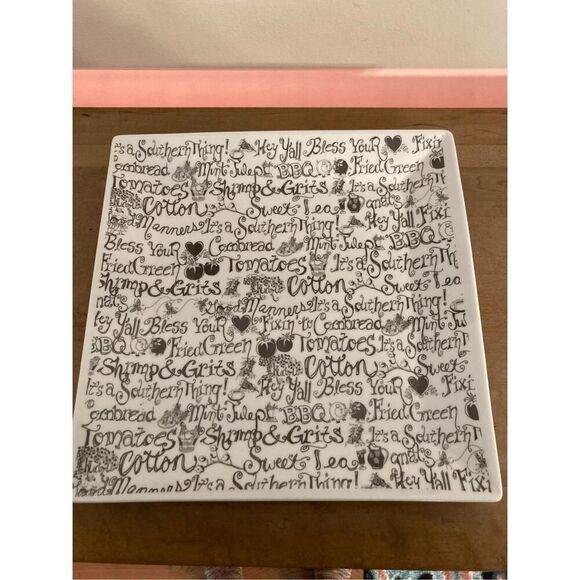 It's a Southern Thing! Hey Y'all Bless Your Fixin
Cornbread Mint Julep BBQ Fried Green
Tomatoes Shrimp & Grits It's a Southern Th
Cotton Sweet Tea Hey Y'all Fixi
Manners It's a Southern Thing!
Bless Your Cornbread Mint Julep BBQ
Fried Green Tomatoes It's a Southern Th
Shrimp & Grits Cotton Sweet Tea
Good Manners It's a Southern Thing!
Hey Y'all Bless Your Fixin' to Cornbread Mint Ju
BBQ Fried Green Tomatoes It's a Southern T
Shrimp & Grits Cotton Sweet Tea
It's a Southern Thing! Hey Y'all Bless Your Fixi
Cornbread Mint Julep BBQ Fried Green
Tomatoes Shrimp & Grits It's a Southern T
Cotton Sweet Tea
Manners It's a Southern Thing! Hey Y'all Fixi